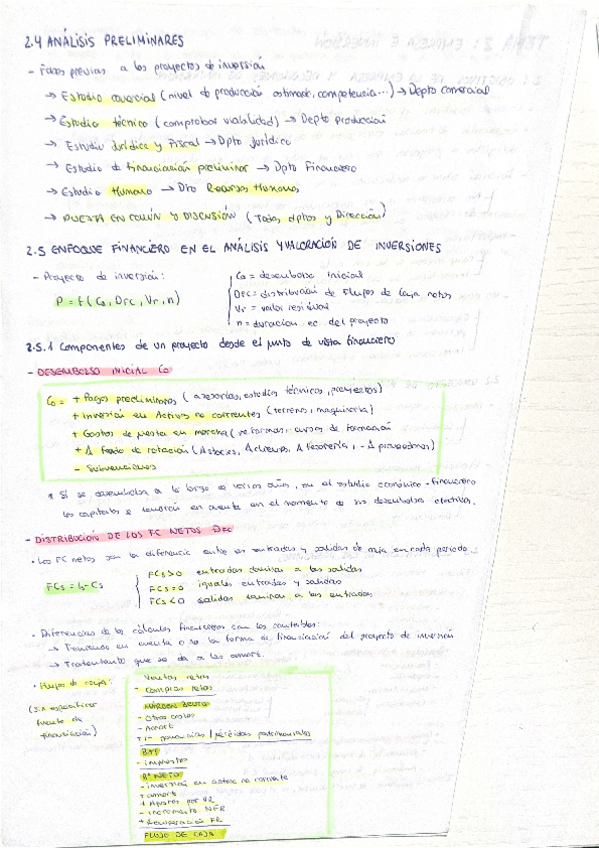 2.4 ANÁLISIS PRELIMINARES
- Fases previas a los proyectos de inversión
→ Estudio comercial (nivel de producción estimada, competencia...) → Depto comercial
→ Estudio técnico (comprobar viabilidad) → Depto producción
→ Estudio Jurídico y Fiscal → Dpto Jurídico
→ Estudio de financiación preliminar → Dpto Financiero
→ Estudio Humano → Dto Recursos Humanos
→ PUESTA EN COMÚN Y DISCUSIÓN (Todos dptos y Dirección)
2.5 ENFOQUE FINANCIERO EN EL ANÁLISIS Y VALORACIÓN DE INVERSIONES
- Proyecto de inversión:
P = f(Co, DFC, Vr, n)
Co = desembolso inicial
DFC = distribución de Flujos de Caja netos
Vr = valor residual
n = duración ec. del proyecto
2.5.1 Componentes de un proyecto desde el punto de vista financiero
- DESEMBOLSO INICIAL Co
Co = + Pagos preeliminares (asesorías, estudios técnicos, proyectos)
+ Inversión en Activos no corrientes (terreno, maquinaria)
+ Gastos de puesta en marcha (reformas, cursos de formación
+ Δ fondo de rotación (Δ stocks, Δ clientes, Δ tesorería, - Δ proveedores)
- Subvenciones
* Si se desembolsa a lo largo de varios años, en el estudio económico-financiero
los capitales se tendrán en cuenta en el momento de sus desembolsos efectivos.
- DISTRIBUCIÓN DE LOS FC NETOS DFC
• Los FC netos son la diferencia entre las entradas y salidas de caja en cada periodo.
FCs = Is - Cs
FCs > 0 entradas dominan a las salidas
FCs = 0 iguales entradas y salidas
FCs < 0 salidas dominan a las entradas
• Diferencias de los cálculos financieros con los contables:
→ Teniendo en cuenta o no la forma de financiación del proyecto de inversión
→ Tratamiento que se da a las amort.
• Flujos de caja:
(sin especificar
fuente de
financiación)
Ventas netas
- Compras netas
MARGEN BRUTO
- Otros costes
- Amort
+/- ganancias / pérdidas patrimoniales
BAT
- impuestos
Rº NETO
- inversión en activo no corriente
+ amort
+ Ajustes por VR
- incremento NFR
+ Recuperación FR
FLUJO DE CAJA